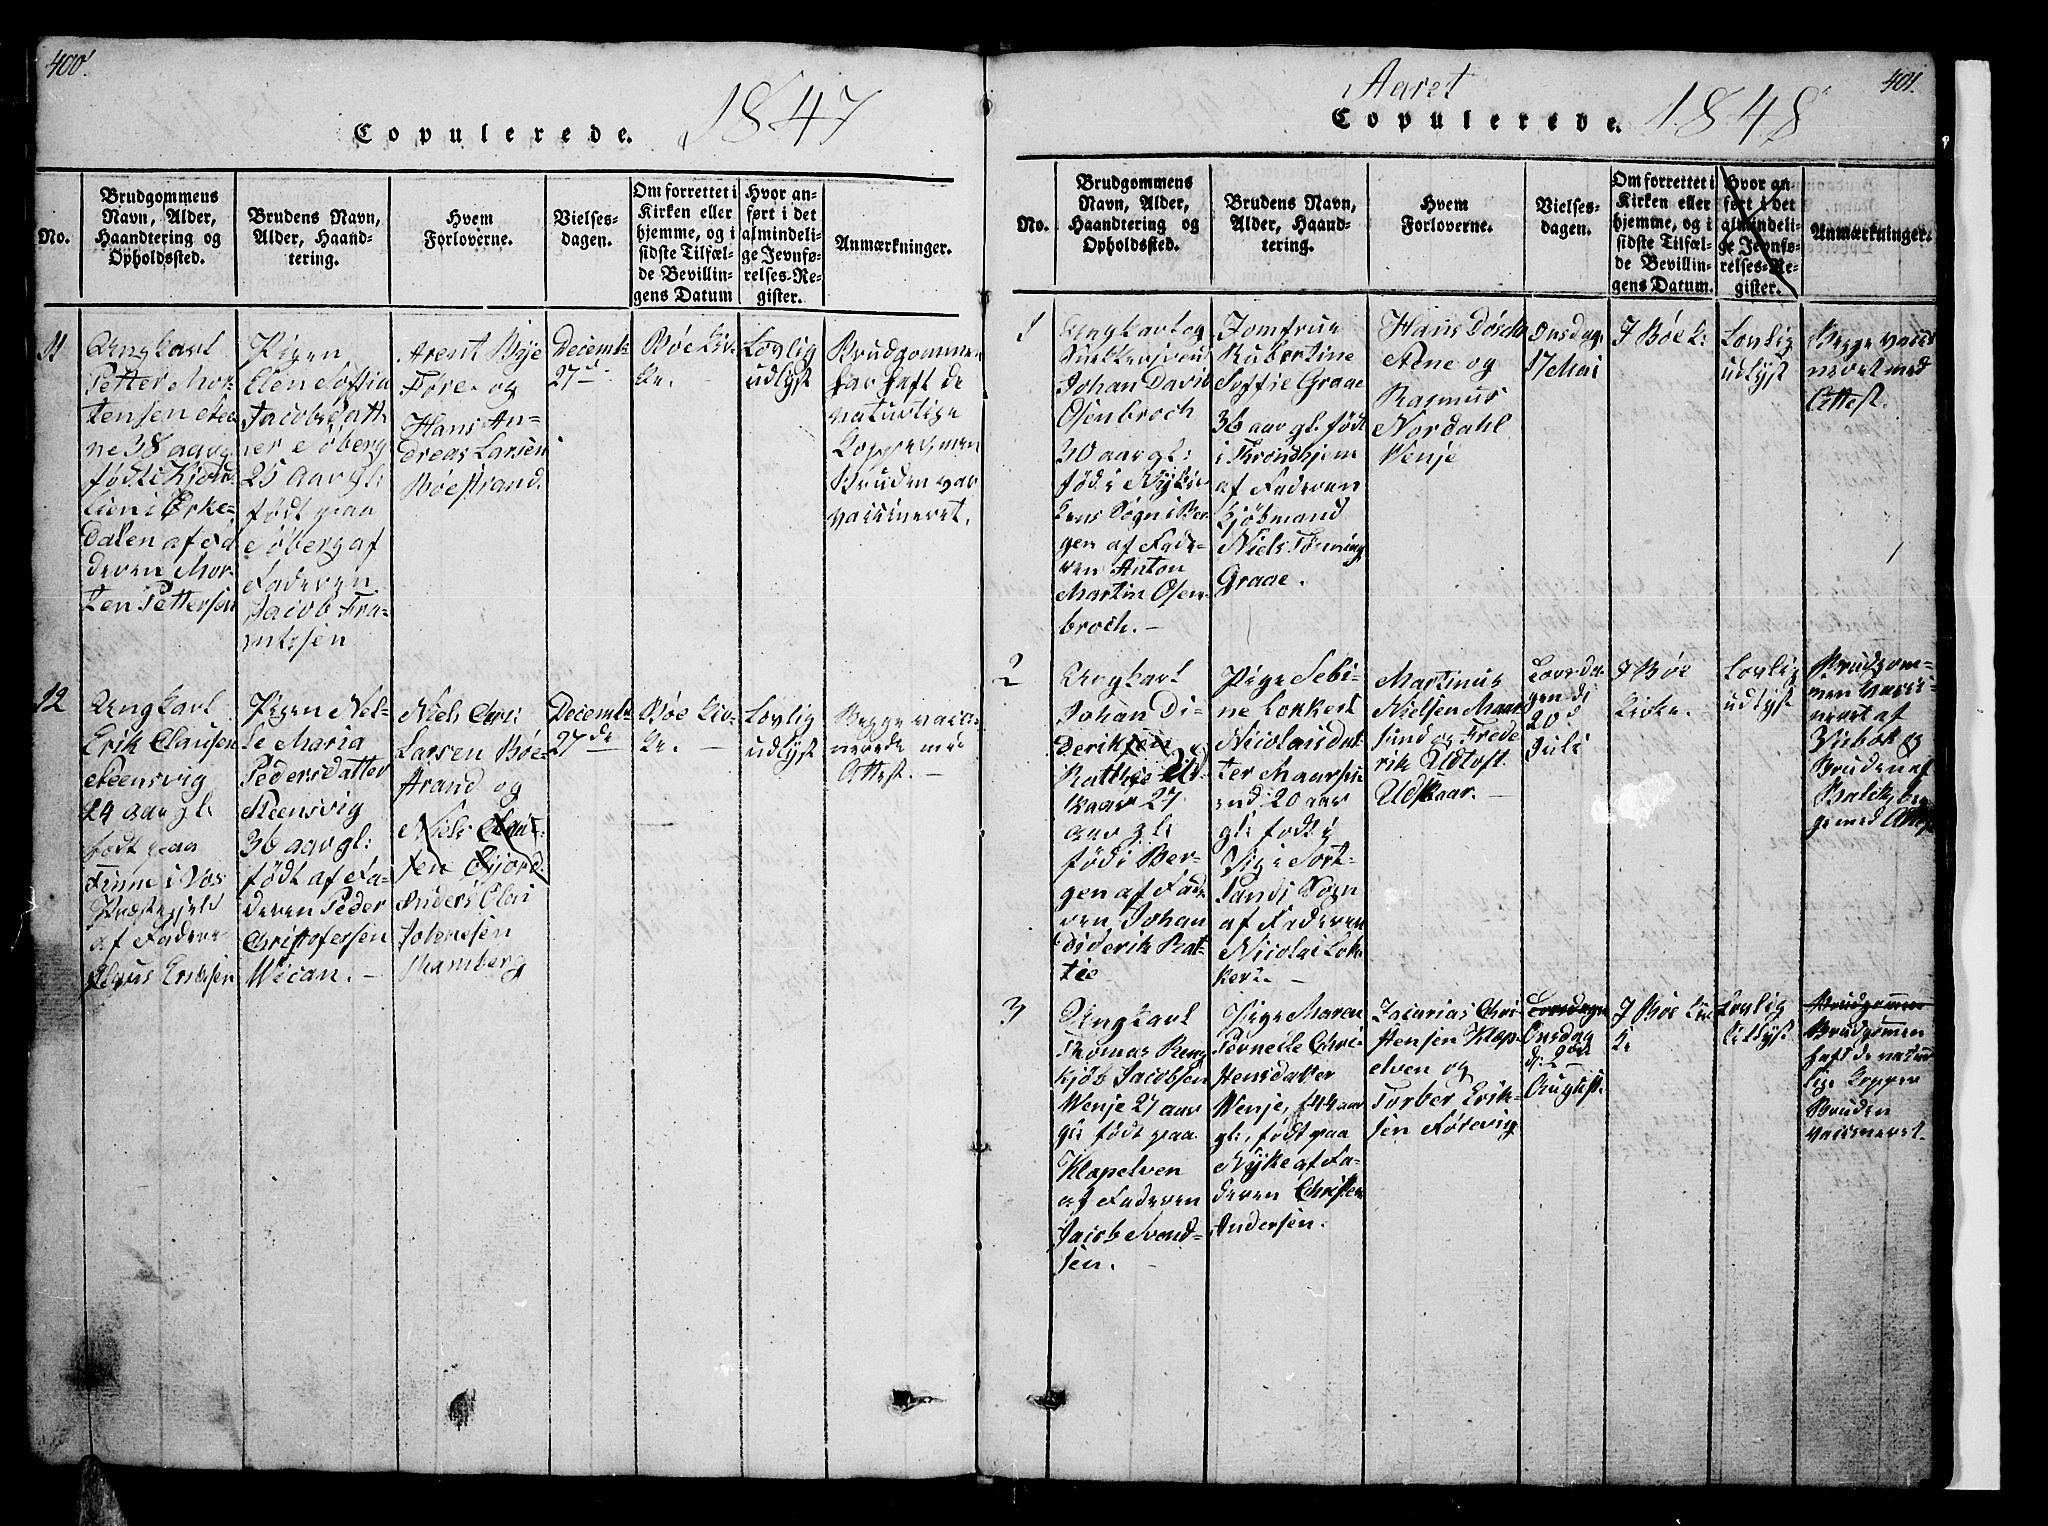 400.
Copulerede. 1847
No.
Brudgommens
Navn, Alder,
Haandtering og
Opholdssted.
Brudens Navn,
Alder, Haand-
tering.
Hvem
Forloverne.
Vielses-
dagen.
Om forrettet i
Kirken eller
hjemme, og i
sidste Tilfæl-
de Bevillin-
gens Datum
Hvor an-
ført i det
almindeli-
ge Jevnfø-
relses-Re-
gister.
Anmærkninger.
11
Ungkarl
Petter Mor-
tensen
ne 38 aar
født i
lien i Orke-
dalen af Fa-
deren Mor-
ten Pettersen
Pigen
Elen Sofia
Jacobsdatt
ner Søberg
25 aar gl:
født paa
Søberg af
Faderen
Jacob Fra-
ntssen
Arent Bye
Føre og
Hans An-
dreas Larsen
Bøestrand.
Decemb:
27d.
Bøe Kir-
ke. -
Lovlig
udlyst
Brudgommen
har haft de
naturlige
Kopper, men
Bruden var
vaccineret.
12
Ungkarl
Erik Clausen
Steensvig
24 aar gl:
født paa
Finne i Vos
Præstegjeld
af Faderen
Claus Eriksen
Pigen Nel-
le Maria
Pedersdatter
Steensvig
36 aar gl:
født af Fa-
deren Peder
Christofersen
Wican. -
Niels Chri
Larsen Bøe-
strand og
Niels Claus-
sen Fjord
Anders Olai
Johnesen
Ramberg
Decemb:
27de
Bøe Kir-
ke. -
Lovlig
udlyst
Begge vacci-
nerede med
Attest. -
401.
Aaret
Copulerede. 1848
No.
Brudgommens
Navn, Alder,
Haandtering og
Opholdssted.
Brudens Navn,
Alder, Haand-
tering.
Hvem
Forloverne.
Vielses-
dagen.
Om forrettet i
Kirken eller
hjemme, og i
sidste Tilfæl-
de Bevillin-
gens Datum.
Hvor an-
ført i det
almindeli-
ge Jevnfø-
relses-Re-
gister.
Anmærkninger.
1
Ungkarl og
Johan David
Osenbroch
30 aar gl:
fød i Nykir-
kens Sogn i Ber-
gen af Fade-
ren Anton
Martin Osen-
broch. -
Jomfrue
Rubertine
Soffie Graae
36 aar gl. født
i Trondhjem
af Faderen
Kjøbmand
Niels Tønning
Graae.
Hans
Nene og
Rasmus
Nordahl
Venje
Onsdag
17 Mai
I Bøe K:
Lovlig
udlyst
Begge vacci
neret med
Attest.
2
Ungkarl
Johan Di-
derik sen
Rattkie
kaar 27
aar gl:
fød i Ber-
gen af Fade-
ren Johan
Diderik Rat-
tie
Pige Sebi-
ne Lokkert
Nicolaisdat-
ter Maarsu-
nd 20 aar
gl: født i
Sort-
lands Sogn
af Faderen
Nicolai Lok-
kert. -
Martinus
Nielsen Maar
sund og Frede
rik Udtoft
Udskaar. -
Loverda-
gen d:
20d
Juli
I Bøe
Kirke.
Lovlig
udlyst
Brudgom-
men vacci-
neret af
og
Bruden af
beg
ge med Attest
3
Ungkarl
Thomas Reng
kjøb Jacobsen
Wenje 27 aar
gl: født paa
Klopelven
af Faderen
Jacob Svend-
sen. -
Pige Maren
Pernelle Chri-
stensdatter
Wenje, 44 aar
gl:, født paa
Nyke af Fa-
deren Christen
Andersen.
Zacarias Chri-
stensen Klop-
elven og
Torber Erik-
sen Førevig
Loverdagen
Onsdag
d: 2de
August.
I Bøe Kir
ke
Lovlig
udlyst
Brudgommen
Brudgommen
haft de natur
lige Kopper
Bruden
vaccineret.